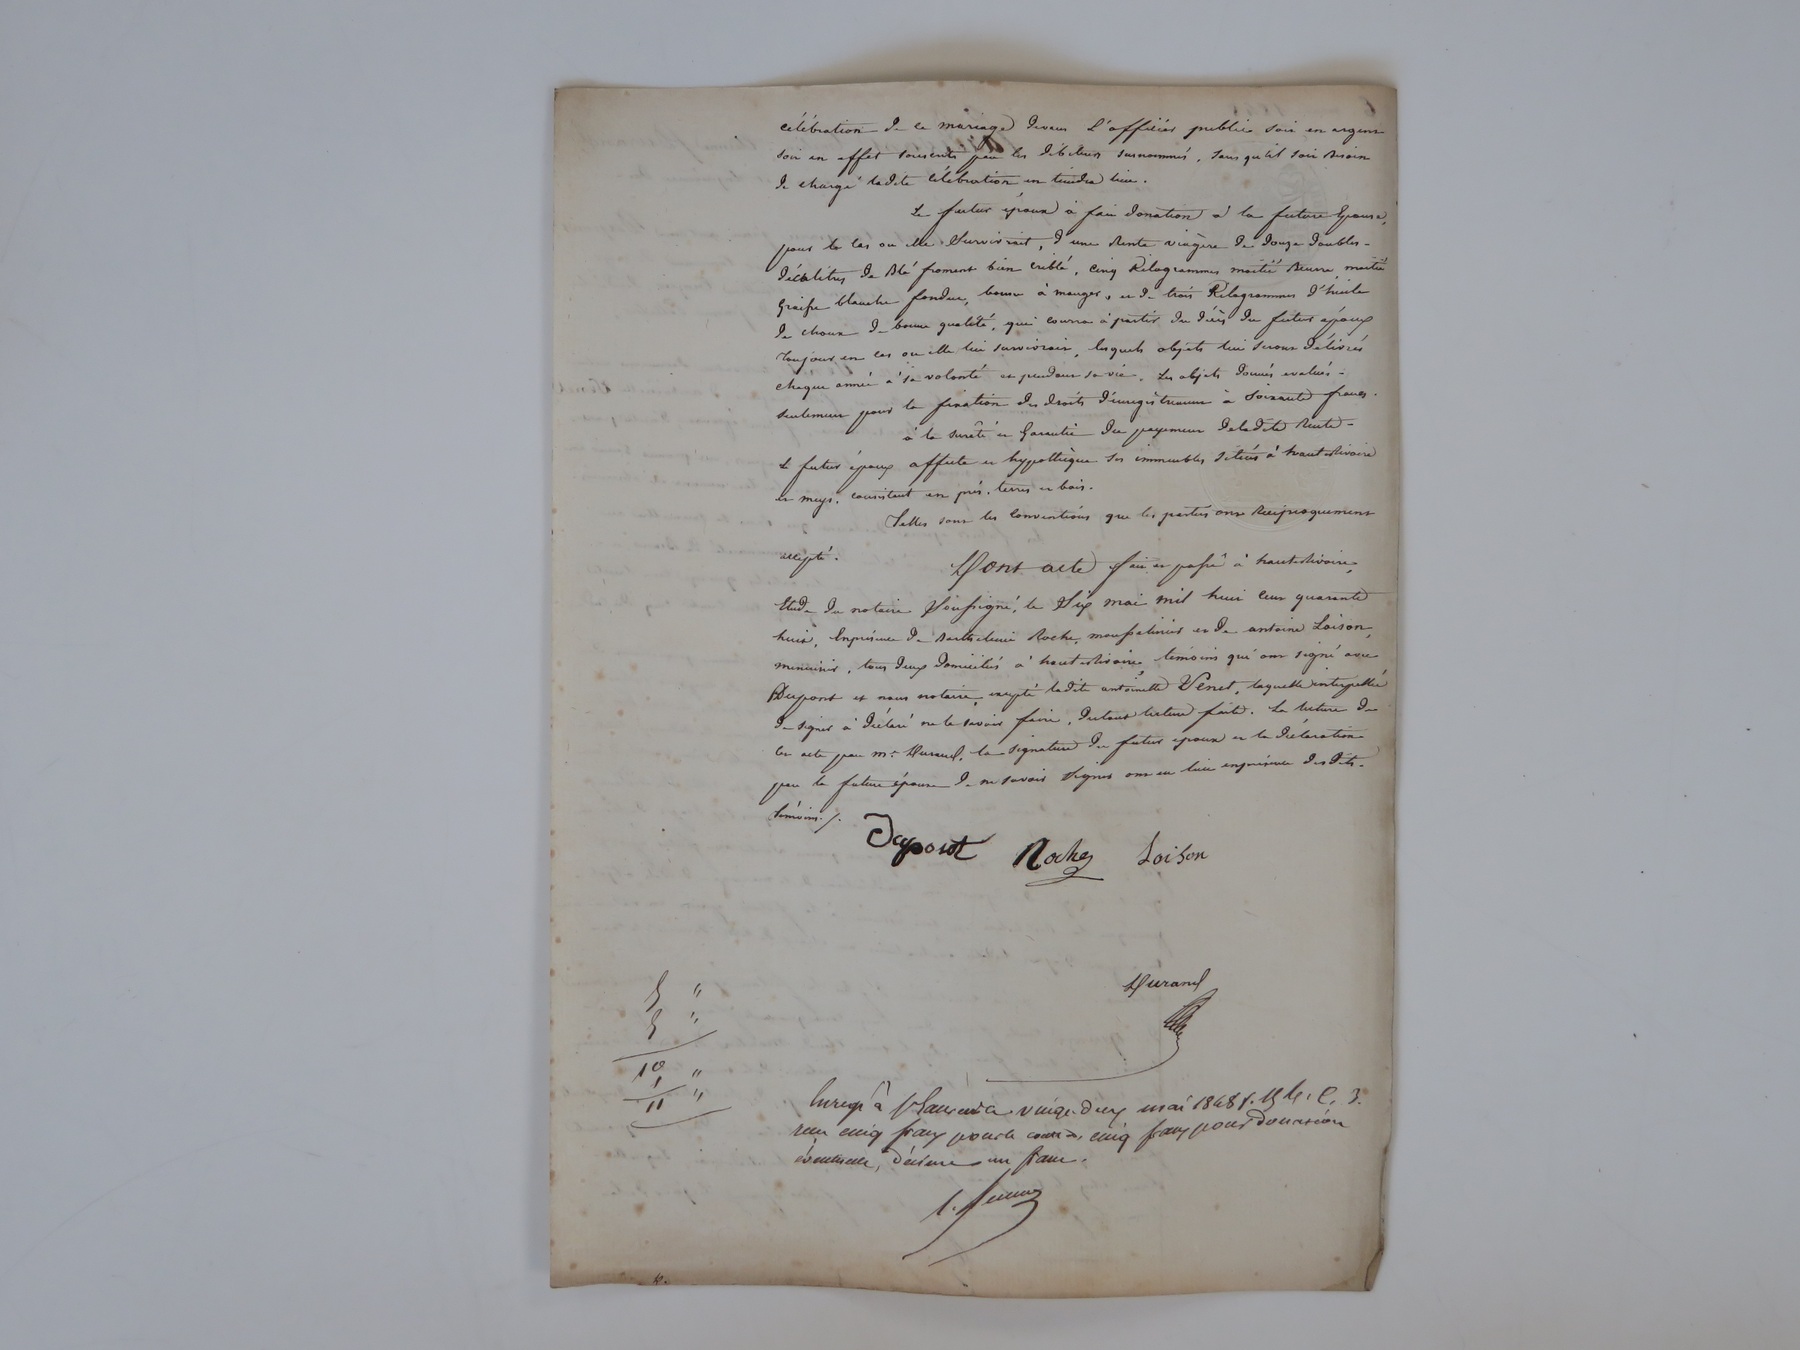 célébration de ce mariage devant L'officier public soit en argent
soit en effet souscrits par les débiteurs susnommés, sans qu'il soit besoin
de charge ladite célébration en tiendra lieu.
Le futur époux à fait donation à la future Epouse,
pour le cas ou elle Survivrait, d'une Rente viagère de douze doubles-
décalitres de Blé froment bien criblé, cinq Kilogrammes moitié Beurre, moitié
Graisse blanche fondue, bonne à manger, et de trois Kilogrammes d'huile
de choux de bonne qualité, qui courra à partir du décès du futur époux
Toujours en cas ou elle lui survivrait, lesquels objets lui seront délivrés
chaque année à sa volonté et pendant sa vie. Les objets donnés evalués-
seulement pour la fixation des droits d'enregistrement à Soixante francs.
à la sureté et Garantie du payement de ladite Rente-
Le futur époux affecte et hypothèque ses immeubles Situés à hauterivoire
et meys, consistant en prés, terres et bois.
Telles sont les Conventions que les parties ont Réciproquement
accepté.
Dont acte fait et passé à hauterivoire,
Etude du notaire Soussigné, le Six mai mil huit cent quarante
huit, En présence de Barthelemi Roche, et de antoine Loison,
menuisier, tous deux domiciliés à hauterivoire temoins qui ont signé avec
Dupont et nous notaire, excepté ladite antoinette Venet, laquelle interpellée
de signer à déclaré ne le savoir faire, lecture faite. La lecture du
acte par me Durand, la signature du futur epoux et la déclaration
par la future épouse de ne savoir signer ont eu lieu en présence desdits-
témoins./.
Dupont Roche Loison
Durand
5 "
5 "
10 "
1 "
11 "
Enreg. à St Laurent le vingt-deux mai 1848 f. C. 3.
reçu cinq francs pour le cinq francs pour donation
éventuelle, décime un franc.